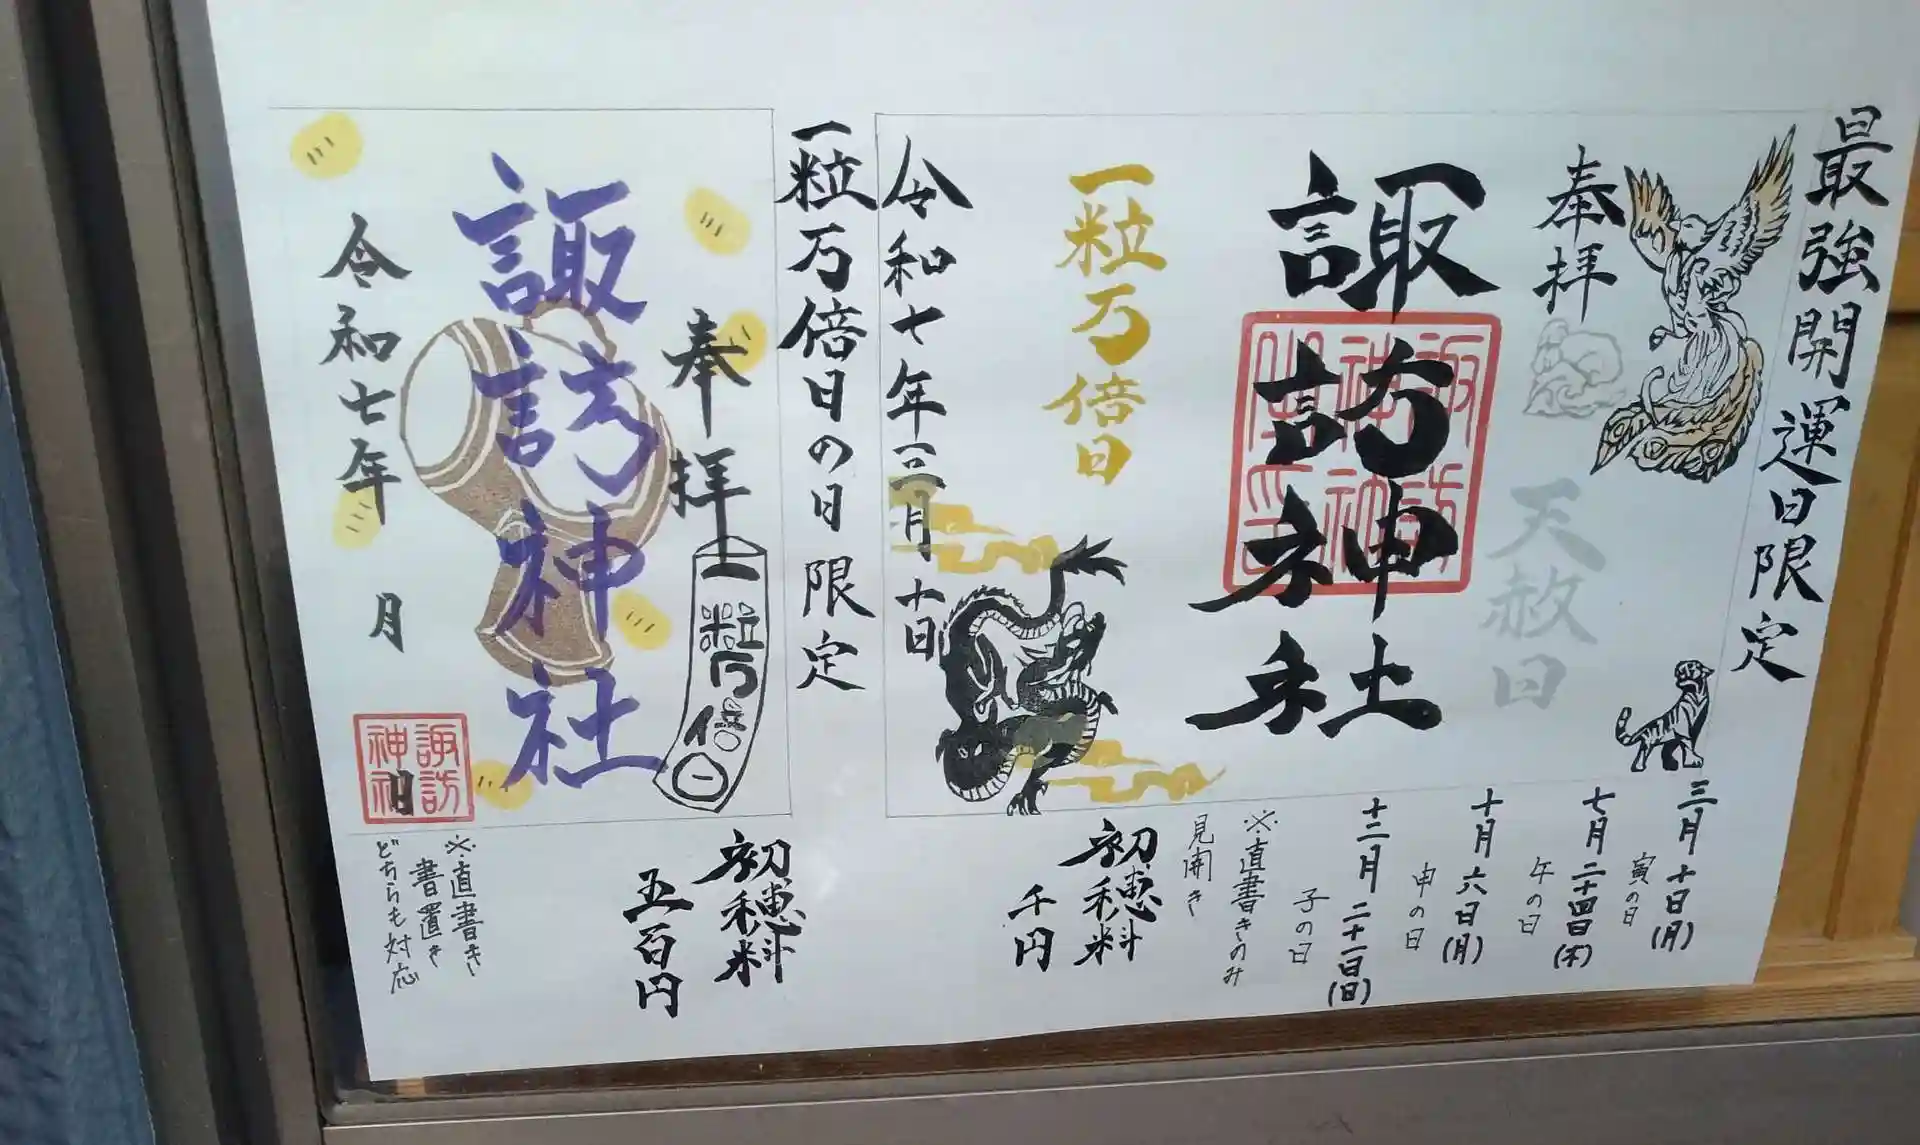 最強開運日限定
奉拝
天赦日
諏訪神社
一粒万倍日
令和七年三月十日
三月十日(月)
寅の日
七月二十四日(木)
午の日
十月六日(月)
申の日
十二月二十一日(日)
子の日
※直書きのみ
見開き
初穂料
千円
一粒万倍日の日限定
奉拝
一粒万倍日
諏訪神社
令和七年 月 日
諏訪
神社
初穂料
五百円
※直書き
書置き
どちらも対応